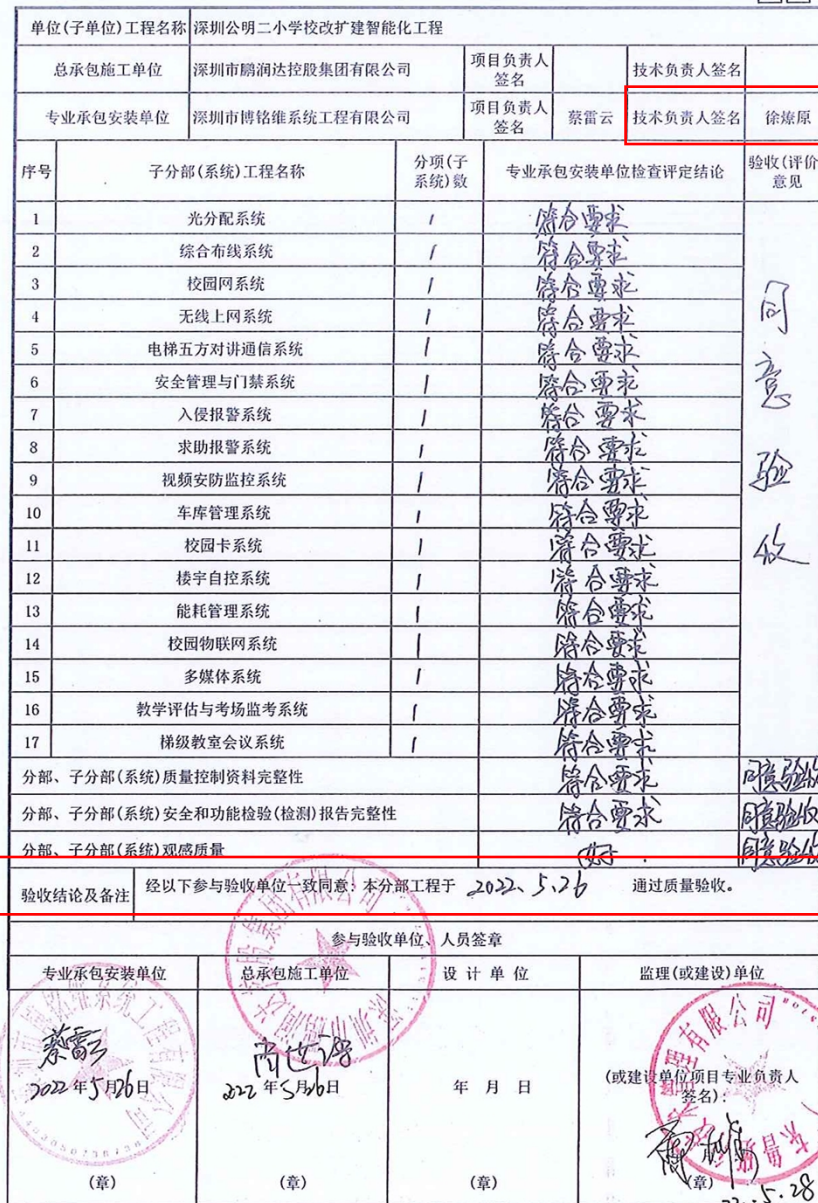 单位(子单位)工程名称 深圳公明二小学校改扩建智能化工程
总承包施工单位 深圳市鹏润达控股集团有限公司 项目负责人签名 技术负责人签名
专业承包安装单位 深圳市博铭维系统工程有限公司 项目负责人签名 蔡雷云 技术负责人签名 徐燎原
序号 子分部(系统)工程名称 分项(子系统)数 专业承包安装单位检查评定结论 验收(评价意见
1 光分配系统 1 符合要求
2 综合布线系统 1 符合要求
3 校园网系统 1 符合要求
4 无线上网系统 1 符合要求
5 电梯五方对讲通信系统 1 符合要求
6 安全管理与门禁系统 1 符合要求
7 入侵报警系统 1 符合要求
8 求助报警系统 1 符合要求
9 视频安防监控系统 1 符合要求
10 车库管理系统 1 符合要求
11 校园卡系统 1 符合要求
12 楼宇自控系统 1 符合要求
13 能耗管理系统 1 符合要求
14 校园物联网系统 1 符合要求
15 多媒体系统 1 符合要求
16 教学评估与考场监考系统 1 符合要求
17 梯级教室会议系统 1 符合要求
同意验收
分部、子分部(系统)质量控制资料完整性 符合要求 同意验收
分部、子分部(系统)安全和功能检验(检测)报告完整性 符合要求 同意验收
分部、子分部(系统)观感质量 好. 同意验收
验收结论及备注 经以下参与验收单位一致同意：本分部工程于 2022.5.26 通过质量验收。
参与验收单位、人员签章
专业承包安装单位 总承包施工单位 设计单位 监理(或建设)单位
蔡雷云
2022年5月26日 2022年5月26日 年 月 日 (或建设单位项目专业负责人
签名)：
(章) (章) (章) (章)
5.28